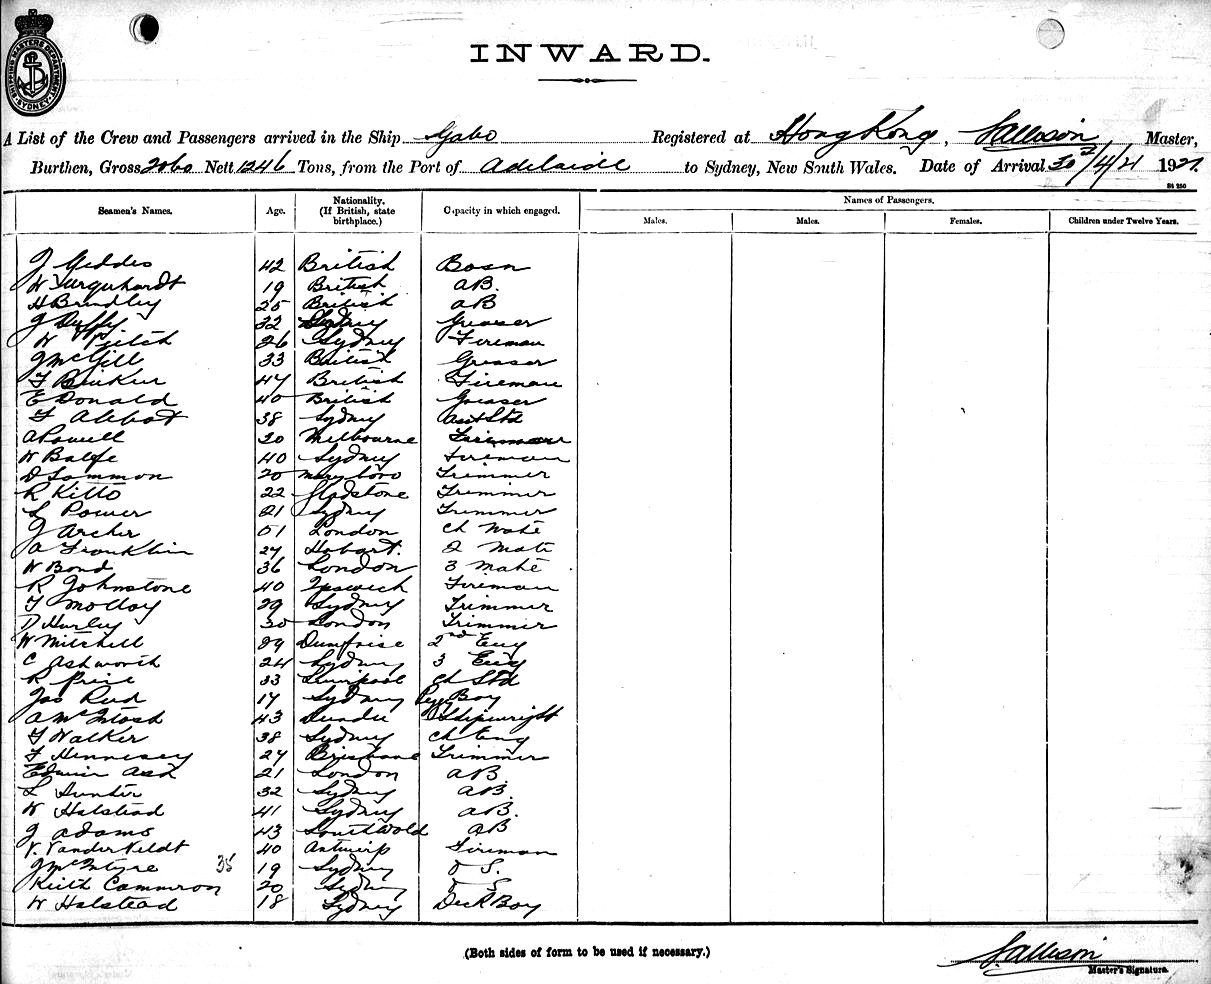 SHIPPING MASTERS DEPARTMENT SYDNEY
INWARD.
A List of the Crew and Passengers arrived in the Ship Gabo Registered at Hong Kong, Master,
Burthen, Gross 2060 Nett 1246 Tons, from the Port of Adelaide to Sydney, New South Wales. Date of Arrival 30/4/21 1921.
Seamen's Names. Age. Nationality. (If British, state birthplace.) Capacity in which engaged. Names of Passengers.
Males. Males. Females. Children under Twelve Years.
J Geddes 42 British Bosn
W Turquhardt 19 British AB.
H Brindley 25 British AB
J Duffy 32 Sydney Greaser
W 26 Sydney Fireman
J McGill 33 British Greaser
F 47 British Fireman
E Donald 40 British Greaser
F Abbot 38 Sydney Asst Std
A Powell 20 Melbourne Fireman
W Balfe 40 Sydney Fireman
D Sammon 20 Maryboro Trimmer
R Kitto 22 Gladstone Trimmer
L Power 21 Sydney Trimmer
J Archer 51 London Ch Mate
A Franklin 27 Hobart. 2 Mate
W Bond 36 London 3 Mate
R Johnstone 40 Ipswich Fireman
F Molloy 29 Sydney Trimmer
D Hurley 30 London Trimmer
W Mitchell 29 Dumfrise 2nd Eng
C Ashworth 24 Sydney 3 Eng
R Price 33 Liverpool Ch Std
Jas Reid 17 Sydney Boy
A McIntosh 43 Dundee Shipwright
F Walker 38 Sydney Ch Eng
F Hennesey 27 Brisbane Trimmer
Edwin Ash 21 London AB.
L Hunter 32 Sydney AB.
W Halstead 41 Sydney AB.
J Adams 43 Southwold AB
V. Vanderveldt 40 Antwerp Fireman
J McIntyre 35 19 Sydney O S.
Keith Cammeron 20 Sydney O S
W Halstead 18 Sydney Deck Boy
(Both sides of form to be used if necessary.)
Master's Signature.